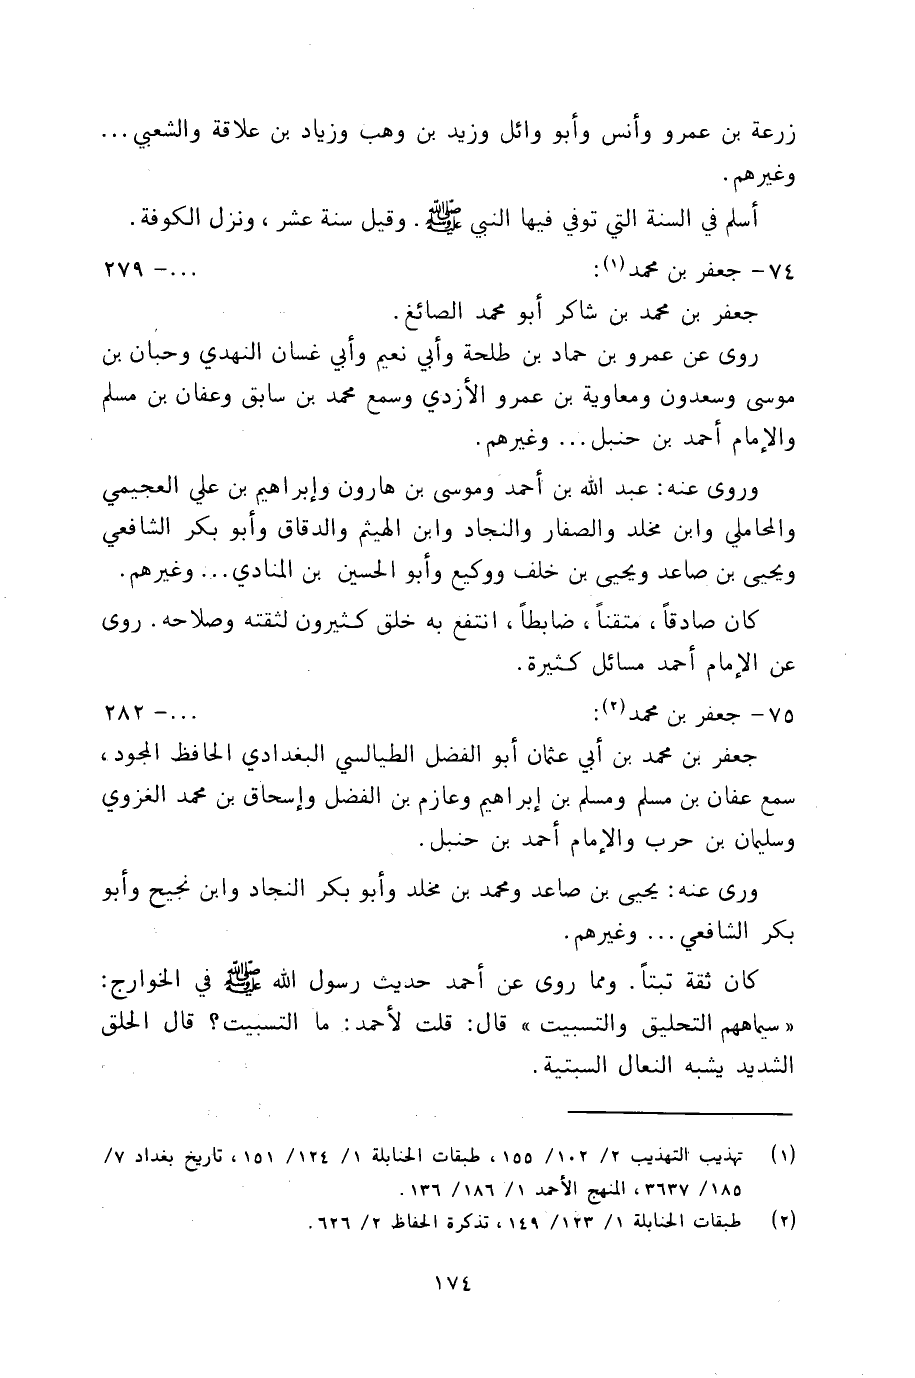 زرعة بن عمرو وأنس وأبو وائل وزيد بن وهب وزياد بن علاقة والشعبي ...
وغيرهم.
أسلم في السنة التي توفي فيها النبي ﷺ. وقيل سنة عشر ، ونزل الكوفة .
٧٤ - جعفر بن محمد(١): ... - ٢٧٩
جعفر بن محمد بن شاكر أبو محمد الصائغ.
روى عن عمرو بن حماد بن طلحة وأبي نعيم وأبي غسان النهدي وحبان بن
موسى وسعدون ومعاوية بن عمرو الأزدي وسمع محمد بن سابق وعفان بن مسلم
والإمام أحمد بن حنبل ... وغيرهم.
وروى عنه: عبد الله بن أحمد وموسى بن هارون وإبراهيم بن علي العجيمي
والمحاملي وابن مخلد والصفار والنجاد وابن الهيثم والدقاق وأبو بكر الشافعي
ويحيى بن صاعد ويحيى بن خلف ووكيع وأبو الحسين بن المنادي ... وغيرهم.
كان صادقاً ، متقناً ، ضابطاً ، انتفع به خلق كثيرون لثقته وصلاحه . روى
عن الإمام أحمد مسائل كثيرة.
٧٥ - جعفر بن محمد(٢): ... - ٢٨٢
جعفر بن محمد بن أبي عثمان أبو الفضل الطيالسي البغدادي الحافظ المجود ،
سمع عفان بن مسلم ومسلم بن إبراهيم وعازم بن الفضل وإسحاق بن محمد الغزوي
وسليمان بن حرب والإمام أحمد بن حنبل.
ورى عنه: يحيى بن صاعد ومحمد بن مخلد وأبو بكر النجاد وابن نجيح وأبو
بكر الشافعي ... وغيرهم.
كان ثقة تبتاً. ومما روى عن أحمد حديث رسول الله ﷺ في الخوارج:
« سيماههم التحليق والتسبيت » قال: قلت لأحمد: ما التسبيت؟ قال الحلق
الشديد يشبه النعال السبتية.
(١) تهذيب التهذيب ٢/ ١٠٢/ ١٥٥ ، طبقات الحنابلة ١/ ١٢٤/ ١٥١ ، تاريخ بغداد ٧/
١٨٥/ ٣٦٣٧ ، المنهج الأحمد ١/ ١٨٦/ ١٣٦ .
(٢) طبقات الحنابلة ١/ ١٢٣/ ١٤٩ ، تذكرة الحفاظ ٢/ ٦٢٦ .
١٧٤